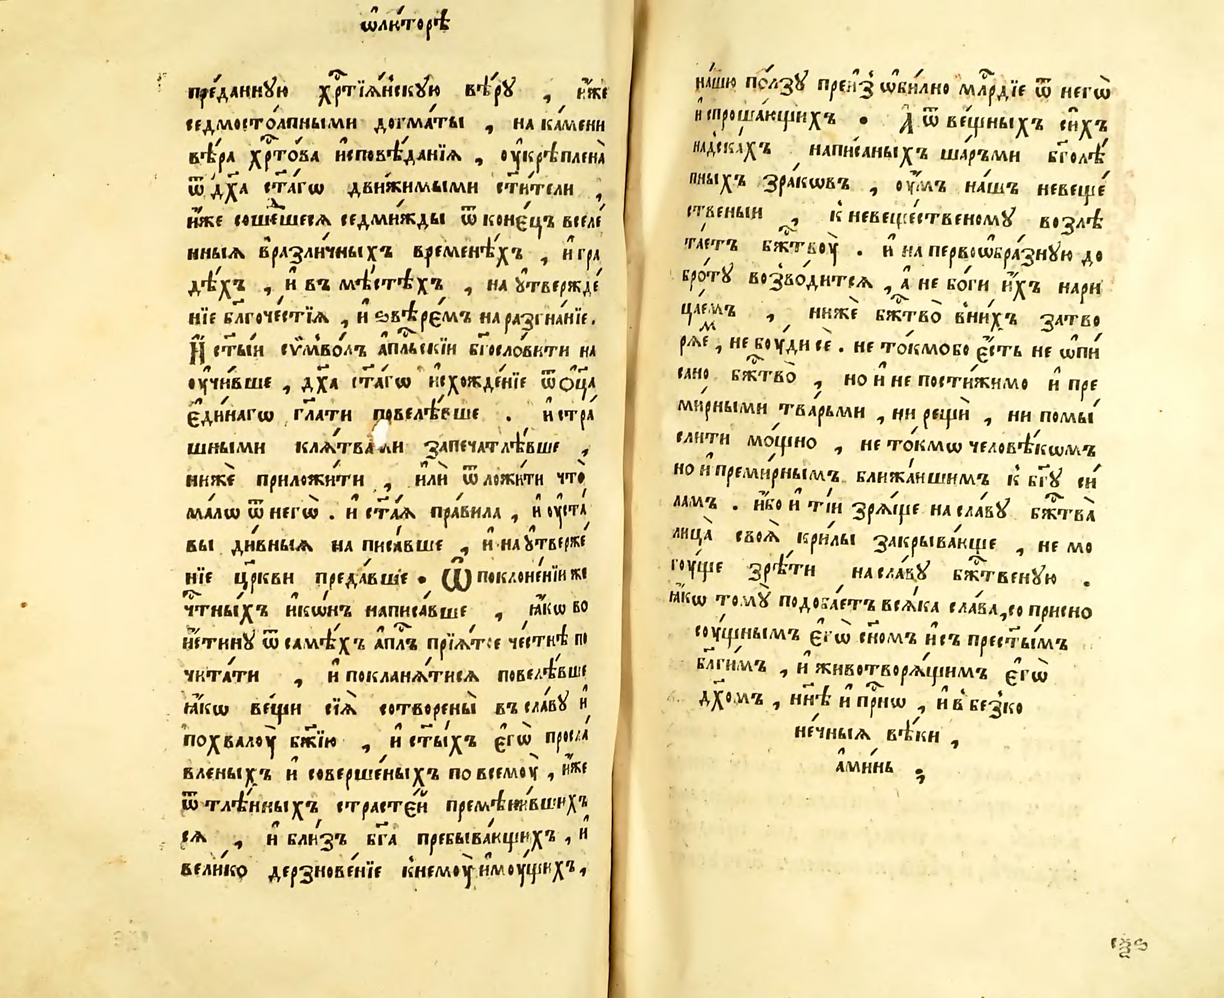 ѡ҆лкторѣ
преданнꙋю хрⷭ҇тїѧ́нскꙋю вѣ́рꙋ , и҆́же
седмосто́лпными догма́ты , на ка́мени
вѣ́ра хрⷭ҇то́ва и҆сповѣ́данїѧ , оу҆крѣплена̀
ѿ дх҃а ст҃а́гѡ дви́жимыми ст҃и́тели ,
и҆́же соше́шеся седми́жды ѿ коне́цъ вселе́
нныѧ в̾разли́чныхъ времене́хъ , и҆ гра
дѣ́хъ , и҆ въ мѣ́стѣхъ , на ᲂу҆твержде́
нїе бл҃гоче́стїѧ , и҆ ѕвѣре́мъ на разгна́нїе .
И҆ ст҃ы́и сѵ́мво́лъ а҆пⷭ҇льскїи бг҃осло́вити на
оу҆чи́вше , дх҃а ст҃а́гѡ и҆схожде́нїе ѿ ѻ҆ц҃а̀
є҆ди́нагѡ гл҃а́ти повелѣ́вше . и҆ стра́
шными клѧ́твами запечатлѣ́вше ,
нижѐ приложи́ти , и҆лѝ ѿложи́ти что̀
ма́лѡ ѿ негѡ̀ . и҆ ст҃а́ѧ пра́вила , и҆ оу҆ста́
вы ди́вныѧ написа́вше , и҆ на ᲂу҆тверже́
нїе цр҃кви преда́вше . Ѿ поклоне́нїи же
чⷭ҇тны́хъ и҆ко́нъ написа́вше , ꙗ҆́кѡ во
и҆́стинꙋ ѿ самѣ́хъ а҆пⷭ҇лъ прїѧ́тсе че́стнѣ по
чита́ти , и҆ покланѧ́тисѧ повелѣ́вше
ꙗ҆́кѡ ве́щи сїѧ̀ сотворены̀ въ сла́вꙋ и҆
похвалоу̀ бж҃їю , и҆ ст҃ы́хъ є҆гѡ̀ просла́
вленыхъ и҆ соверше́ныхъ по всемоу̀ , и҆́же
ѿ тлѣ́нныхъ страсте́й премѣни́вшихъ
сѧ , и҆ бли́зъ бг҃а пребыва́ющихъ , и҆
вели́ко дерзнове́нїе к̾немоу̀ и҆моу́щихъ ,
на́шю по́лзꙋ преи҆з̾ѡби́лно млⷭ҇рдїе ѿ негѡ̀
и҆спроша́ющихъ . А҆ ѿ ве́щныхъ си́хъ
на́дскахъ напи́саныхъ ша́ръми бг҃олѣ́
пныхъ зра́кѡвъ , оу҆́мъ на́шъ невеще́
ственыи , к̾ невеще́ственомꙋ возлѣ
та́етъ бжⷭ҇твоу̀ . и҆ на первоѡ҆бра́знꙋю до
бро́тꙋ возво́дитсѧ , а҆ не бо́ги и҆́хъ нари
ца́емъ , нижѐ бжⷭ҇тво̀ в̾ни́хъ затво
рѧ́еⷨ , не бо́уди сѐ . не то́кмо бо є҆́сть не ѡ҆пи́
сано бжⷭ҇тво̀ , но и҆ не постижи́мо и҆ пре
ми́рными тва́рьми , ни рещѝ , ни помы́
слити мо́щно , не то́кмѡ человѣ́кѡмъ
но и҆ преми́рнымъ ближа́ишимъ к̾ бг҃ꙋ си́
ламъ . и҆́бо и҆ ті́и зрѧ́ще на сла́вꙋ бжⷭ҇тва̀
ли́ца своѧ̀ крилы̀ закрыва́юще , не мо
гоу́ще зрѣ́ти на сла́вꙋ бжⷭ҇твеную .
ꙗ҆́кѡ томꙋ̀ подоба́етъ всѧ́ка сла́ва , со присно
соу́щнымъ є҆гѡ̀ сн҃омъ и҆ съ прест҃ы́мъ
бл҃ги́мъ , и҆ животворѧ́щимъ є҆гѡ̀
дх҃омъ , нн҃ѣ и҆ прⷭ҇нѡ , и҆ в̾ безко
не́чныѧ вѣ́ки ,
а҆ми́нь ;